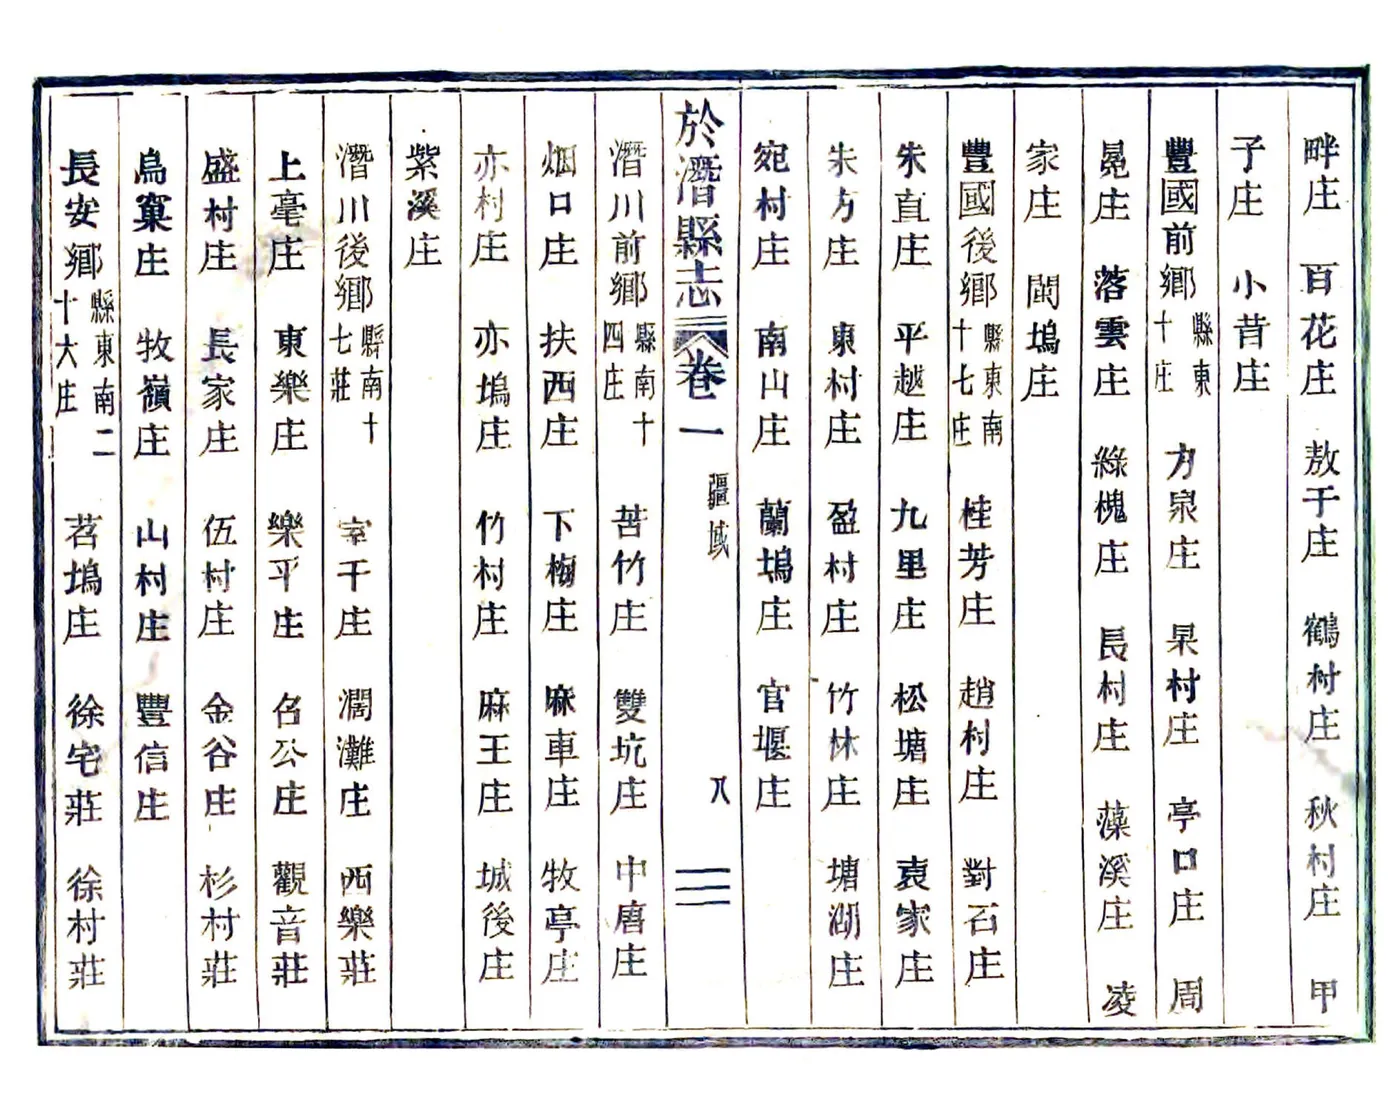 畔庄　百花庄　敖干庄　鶴村庄　秋村庄　甲
子庄　小昔庄
豐國前鄉縣東十庄　方泉庄　杲村庄　亭口庄　周
晃庄　落雲庄　綠槐庄　長村庄　藻溪庄　凌
家庄　閔塢庄
豐國後鄉縣東南十七庄　桂芳庄　趙村庄　對石庄
朱直庄　平越庄　九里庄　松塘庄　袁家庄
朱方庄　東村庄　盈村庄　竹林庄　塘湖庄
宛村庄　南山庄　蘭塢庄　官堰庄
於潛縣志　卷一　疆域　八
潛川前鄉縣南十四庄　苦竹庄　雙坑庄　中唐庄
烟口庄　扶西庄　下梅庄　麻車庄　牧亭庄
亦村庄　亦塢庄　竹村庄　麻王庄　城後庄
紫溪庄
潛川後鄉縣南十七莊　室干庄　濶灘庄　西樂莊
上亳庄　東樂庄　樂平庄　名公庄　觀音莊
盛村庄　長家庄　伍村庄　金谷庄　杉村莊
鳥窠庄　牧嶺庄　山村庄　豐信庄
長安鄉縣東南二十大庄　茗塢庄　徐宅莊　徐村莊